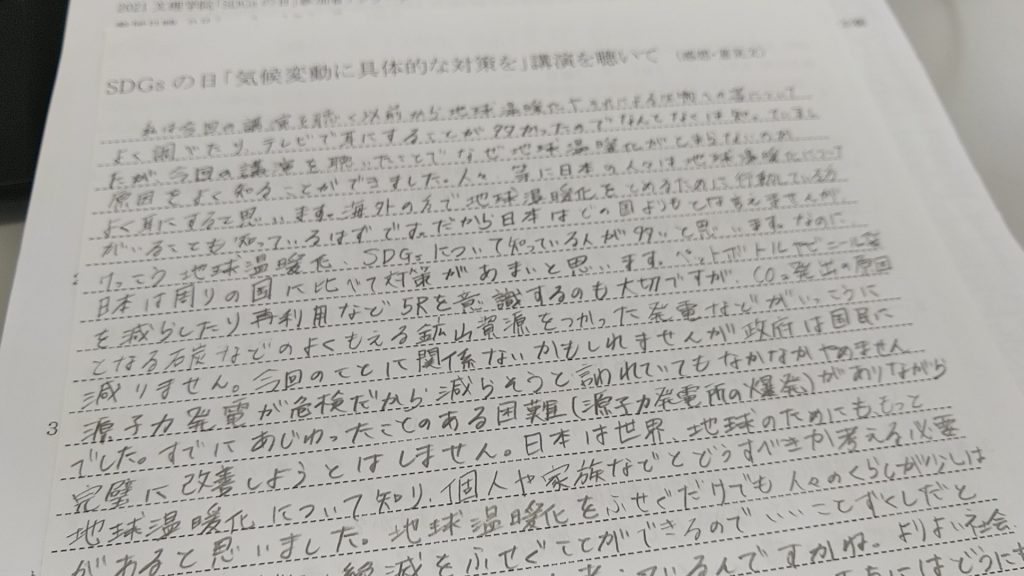 2021 文理学院「SDGs の日」
SDGs の日「気候変動に具体的な対策を」講演を聴いて (感想・意見文)
私は今回の講演を聴く以前から地球温暖化
よく調べたり、テレビで耳にすることが多かったのでなんとなくは知っていまし
たが、今回の講演を聴いたことでなぜ地球温暖化がとまらないのか
原因をよく知ることができました。人々、特に日本の人々は地球温暖化について
よく耳にすると思います。海外の方で地球温暖化をとめるために行動している方
がいることも知っているはずです。だから日本はどの国よりもとはいえませんが
けっこう地球温暖化、SDGsについて知っている人が多いと思います。なのに
日本は周りの国に比べて対策があまいと思います。ペットボトルやビニール袋
を減らしたり再利用など5Rを意識するのも大切ですが、CO₂発出の原因
となる石炭などのよくもえる鉱山資源をつかった発電などがいっこうに
減りません。今回のことに関係ないかもしれませんが政府は国民に
3 原子力発電が危検だから減らそうと言われていてもなかなかやめません
でした。すでにあじわったことのある困難(源子力発電所の爆発)がありながら
完璧に改善しようとはしません。日本は世界、地球のためにも、もっと
地球温暖化について知り、個人や家族などとどうすべきか考える必要
があると思いました。地球温暖化をふせぐだけでも人々のくらしが少しは
絶滅をふせぐことができるのでいいことずくしだと
いるんですかね。よりよい社会